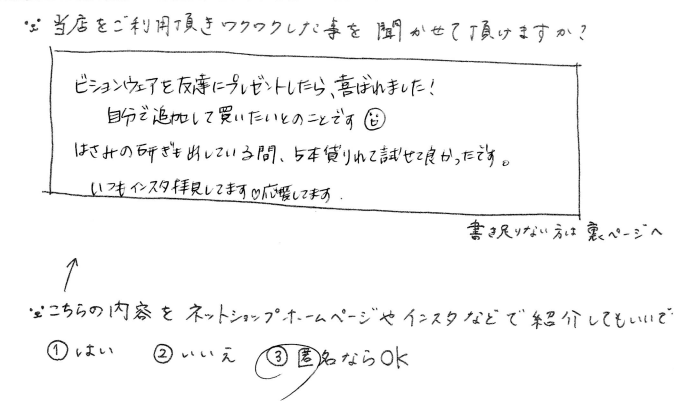 ※当店をご利用頂きワクワクした事を聞かせて頂けますか?
ビションウェアを友達にプレゼントしたら、喜ばれました!
自分で追加して買いたいとのことです
はさみの研ぎを出している間、5本貸りれて試せて良かったです。
いつもインスタ拝見してます♡応援してます.
書き足りない方は裏ページへ
※こちらの内容をネットショップホームページやインスタなどで紹介してもいいで
①はい ②いいえ ③匿名ならOK